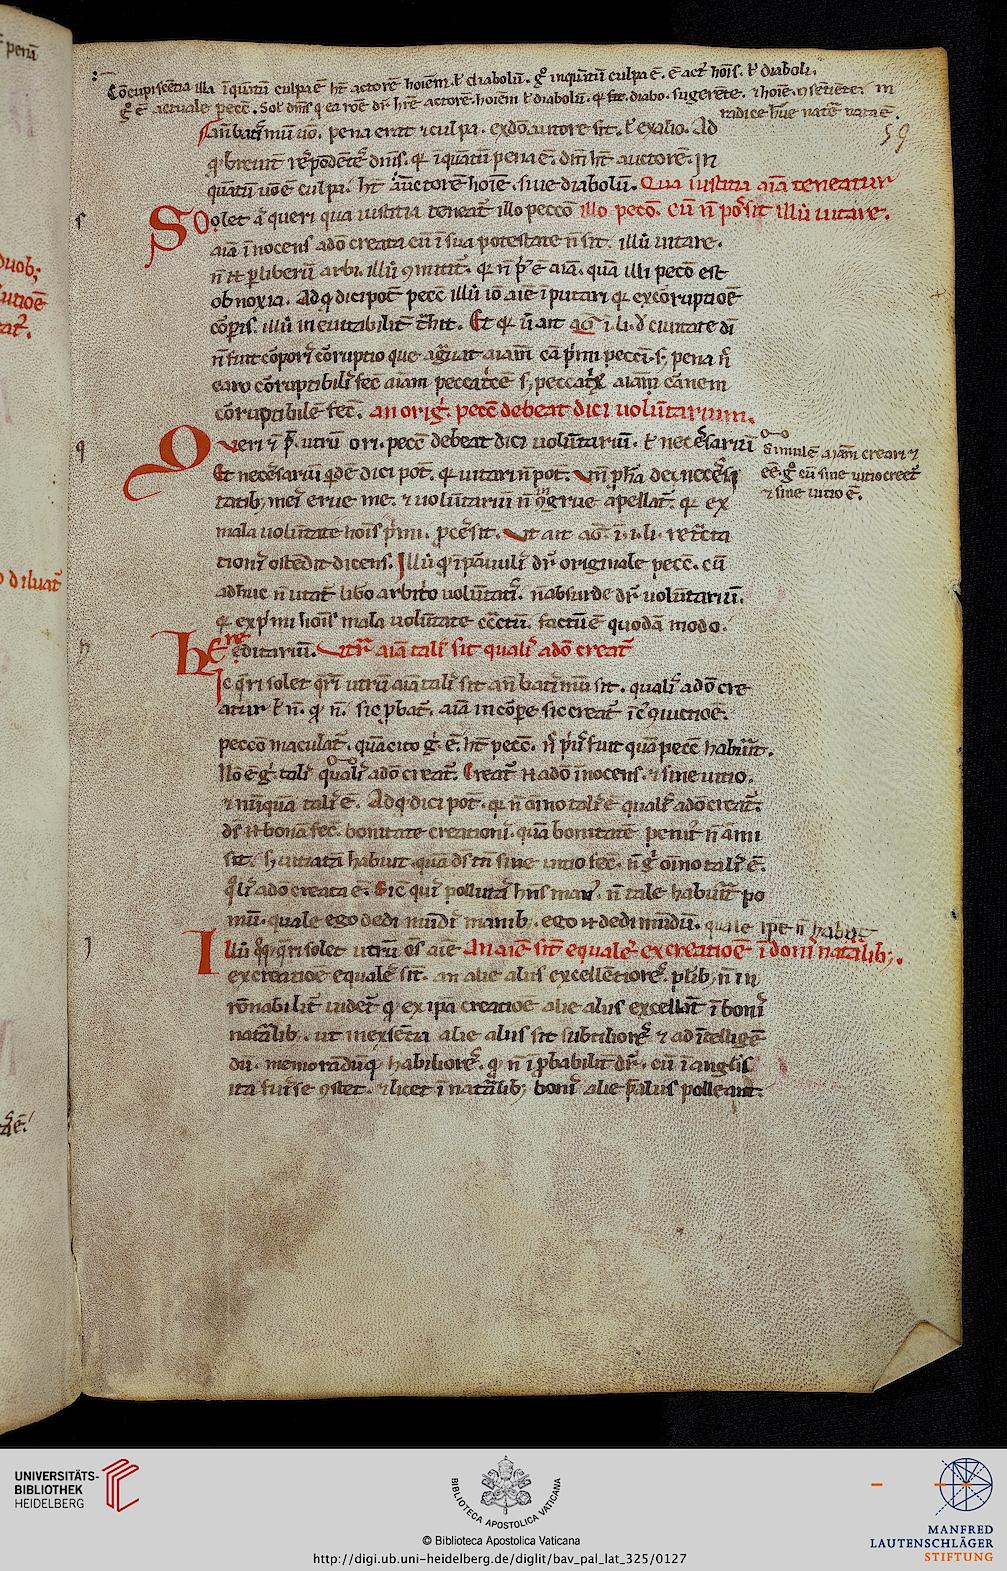 Cōcupiscētia illa īquātū culpa ē ht̄ actorē hoīem. ł diabolū. gͦ inquātū culpa ē. ē actꝰ hoīs. ł diaboli.
an̄ batiſmū ūo. pena erat ⁊ culpa.
qͣ breuit̄ rn̄podētē dnīs. qꝛ īquātū pena ē. dm̄ ht̄ auctorē. In
quātū uō ē culpa. ht̄ auctorē hoīē. siue diabolū. Qua iustitia aīa teneatur
Solet aͣ queri qua iustitia teneat̄ illo peccō illo peccō. cū n̄ possit illū uitare.
aīa īnocens adō creata cū ī sua potestate n̄ sit. illū uitare.
n̄ .n. p liberū arbi. illū ꝯmittit̄. qꝛ n̄ pͥꝰ ē aīa. quā illi peccō est
obnoxia. Ad qͥ dici pot̄ peccm̄ illū iō aīe īputari qꝛ ex corruptiōē
corpis. illū ineuitabilit̄ cͦhit. Et qꝛ ū ait aḡ ī li. d ciuitate dī
n̄ fuit corporis corruptio que aggͣuat aīam cā pͥmi peccī. s; pena n̄
caro corruptibilis fec̄ aīam peccatͥcē s; peccatͥx aīam carnem
corruptibilē fec̄. an oriḡ. pecc̄ debeat dici uolūtarium.
Queri .n. pͣ. utrū ori. pecc̄ debeat dici uoluntariū. ł necessariū
Et necessariū qͥdē dici pot̄. qꝛ uitari n̄ pot̄. Vn̄ pphā dei necessi
tatib; meis erue me. ⁊ uoluntariū n̄ ꝯgͥue apellat̄. qꝛ ex
mala uolūtate hoīs pͥmi. pcessit. Vt ait aḡ. ī. i. li. retͣcta
tionū ostēdit dicens. Illū qͥ ī paruulis dr̄ originale pecc̄. cū
adhuc n̄ utāt̄ libo arbitͥo uolūtatis. n̄ absurde dr̄ uoluntariū.
qꝛ ex pͥmi hoīs mala uolūtate cōtͣctū. factū ē quodā modo.
hereditariū. Vtrū aīa talis sit qualis a dō creat̄
Ic qͥri solet qͥri utrū aīa talis sit an̄ batiſmū sit. qualis a dō cre
atur ł n̄. qꝛ n̄. sic pbat̄. aīa in corpe sic creat̄ īcͦ ꝯiūctiōē.
peccō maculat̄. quā cito gͦ ē. ht̄ pecc̄. n̄ pͥus fuit quā pecc̄ habuit.
Nō ē gͦ talis qualis a dō creat̄. Creat̄ .n. a dō īnocens. ⁊ sine uitio.
⁊ nūquā talis ē. Ad qͥ dici pot̄. qꝛ n̄ oīno talis ē qualis a dō creat̄.
ds̄ .n. bonā fec̄. bonitate creationis. quā bonitatē penitꝰ n̄ ami
sit. s; uitiatā habuit. quā ds̄ tn̄ sine uitio fec̄. n̄ gͦ oīno talis ē.
qͣlis a dō creata ē. Sic qui pollutas hn̄s manꝰ. n̄ tale habuit po
mū. quale ego dedi mūdis manib;. ego .n. dedi mūdū. quale ipe n̄ habuit
Illū qͦqꝫ qͥri solet utrū os̄ aīe An aīe sīt equales ex creatiōe ī donis nat͛alib;.
ex creatiōe equales sīt. an alie aliis excellētiores. plib; n̄ in
rōnabilit̄ uidet̄ qꝛ ex ipa creatiōe alie aliis excellāt ī bonis
nat͛alib;. ut in exsētia alie aliis sīt subtiliores ⁊ ad ītelligē
dū. memorādūqꝫ habiliores. qꝛ n̄ īpbabilit̄ dr̄. cū ī anglis
ita fuisse ꝯstet. ⁊ licet ī nat͛alib; bonis alie pͣ aliis polleant.
59
Simul ē aīam creari ⁊
eē. gͦ cū sine uitio creet̄
⁊ sine uitio ē.
UNIVERSITÄTS-
BIBLIOTHEK
HEIDELBERG
BIBLIOTECA APOSTOLICA VATICANA
© Biblioteca Apostolica Vaticana
http://digi.ub.uni-heidelberg.de/diglit/bav_pal_lat_325/0127
MANFRED
LAUTENSCHLÄGER
STIFTUNG